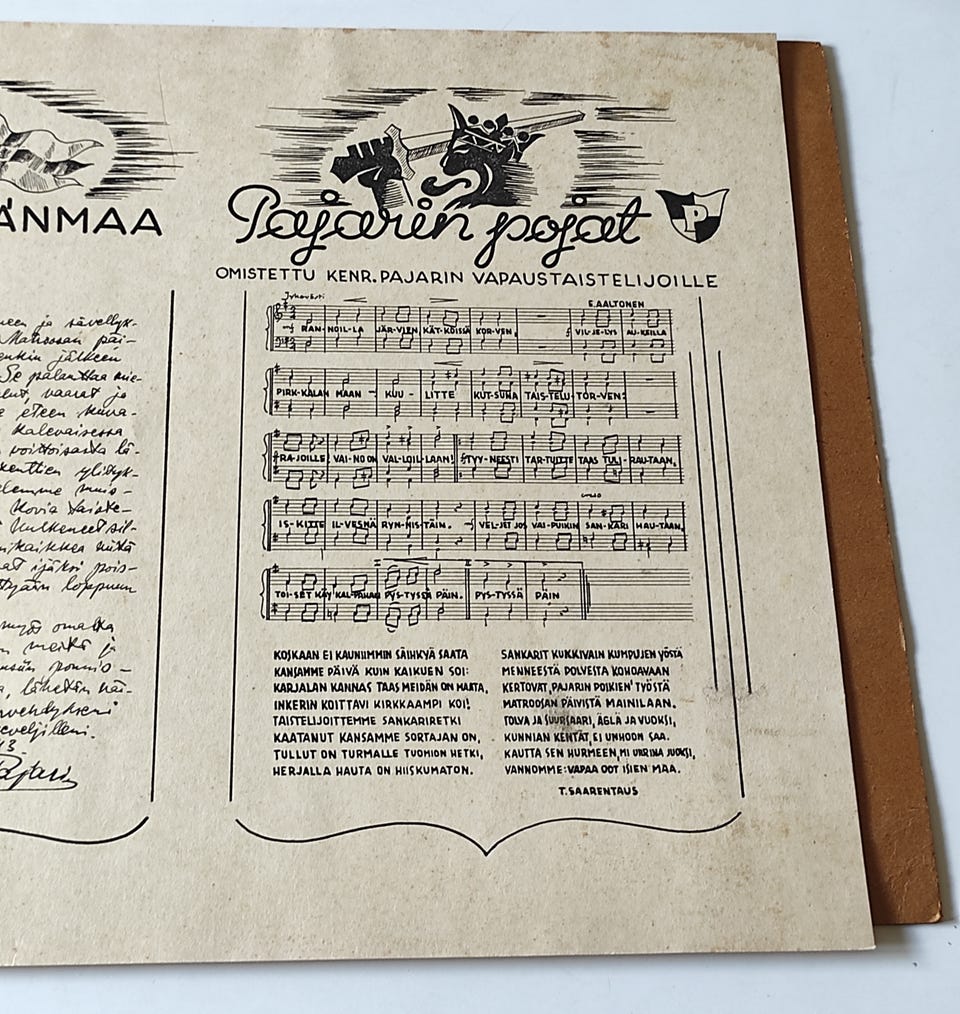 ÄNMAA
neen ja sävellyk-
Matroosan päi-
enkin jälkeen
Se palauttaa mie-
vaarat ja
eteen kuva-
Kalevaisessa
voittoisasta
kenttien ylityk-
elemme muis-
Kovia taiste-
loppuun
myös omasta
meitä ja
Pajarin pojat
P
OMISTETTU KENR. PAJARIN VAPAUSTAISTELIJOILLE
Jykevästi
E. AALTONEN
RAN-NOIL-LA JÄR-VIEN KÄT-KÖISSÄ KOR-VEN, VIL-JE-LYS AU-KEILLA
PIRK-KALAN MAAN - KUU - LITTE KUT-SUNA TAIS-TELU-TOR-VEN:
RA-JOILLE VAI-NO ON VAL-LOIL-LAAN! TYY-NEESTI TAR-TUITTE TAAS TULI-RAU-TAAN,
IS-KITTE IL-VESNÄ RYN-NIS-TÄIN. VEL-JET JOS VAI-PUIKIN SAN-KARI HAU-TAAN,
TOI-SET KÄY KAL-PAHAN PYS-TYSSÄ PÄIN. PYS-TYSSÄ PÄIN
KOSKAAN EI KAUNIIMMIN SÄIHKYÄ SAATA
KANSAMME PÄIVÄ KUIN KAIKUEN SOI:
KARJALAN KANNAS TAAS MEIDÄN ON MAATA,
INKERIN KOITTAVI KIRKKAAMPI KOI!
TAISTELIJOITTEMME SANKARIRETKI
KAATANUT KANSAMME SORTAJAN ON,
TULLUT ON TURMALLE TUOMION HETKI,
HERJALLA HAUTA ON HIISKUMATON.
SANKARIT KUKKIVAIN KUMPUJEN YÖSTÄ
MENNEESTÄ POLVESTA KOHOAVAAN
KERTOVAT, PAJARIN POIKIEN' TYÖSTÄ
MATROOSAN PÄIVISTÄ MAINILAAN.
TOLVA JA SUURSAARI, ÄGLÄ JA VUOKSI,
KUNNIAN KENTÄT, EI UNHOON SAA.
KAUTTA SEN HURMEEN, MI UHRINA JUOKSI,
VANNOMME: VAPAA OOT ISIEN MAA.
T. SAARENTAUS